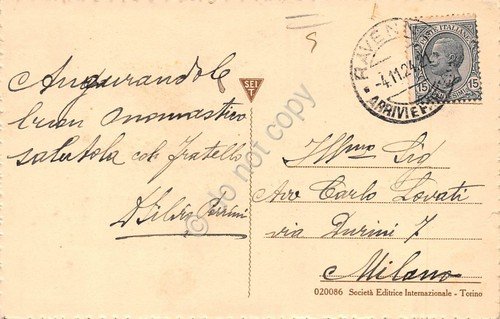 Augurandole
buon onomastico
salutola col fratello
SEI
T
RAVENNA
4.11.24
ARRIVI E
POSTE ITALIANE
15 15
Ill<sup>mo</sup> Sig
Avv Carlo Lovati
via Durini 7
Milano
020086 Società Editrice Internazionale - Torino
do not copy